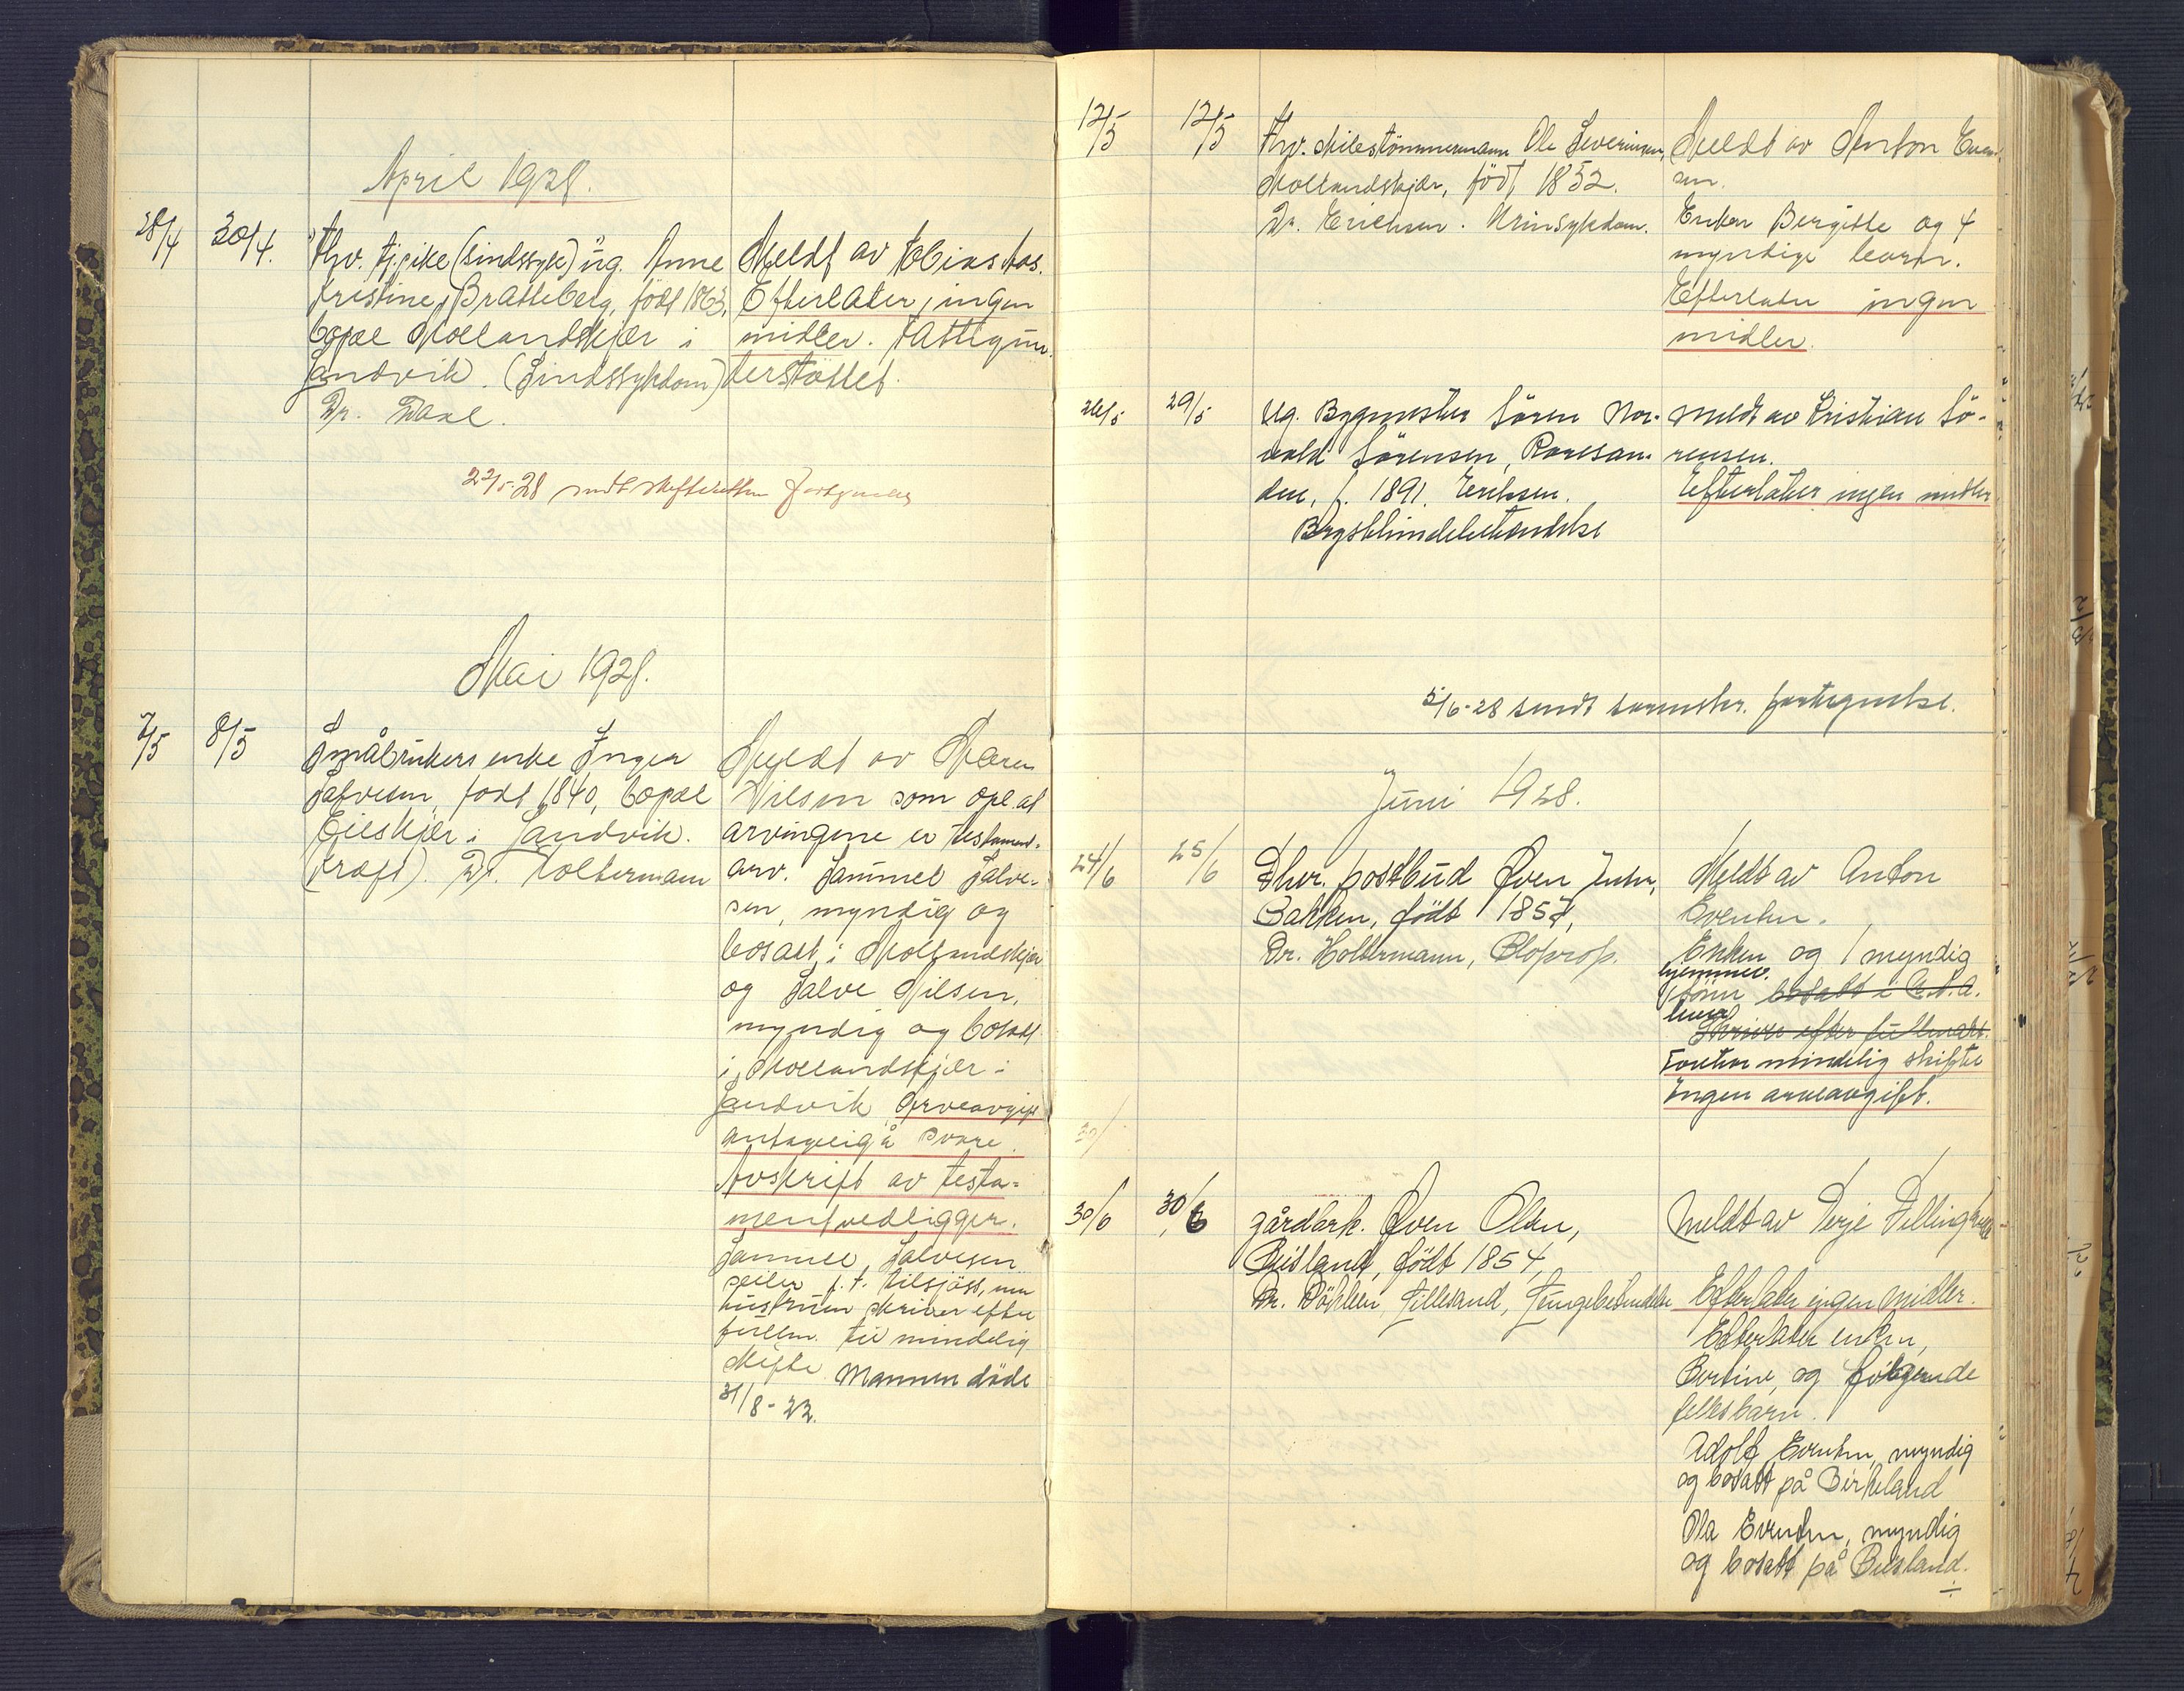 April 1928.
28/4 30/4. Fhv. tj.pike (sindssyk) ug. Anne
Kristine Bratteberg, født 1863,
bopæl Mollandskjær i
Landvik. (Sindssykdom)
Dr. Daxl.
Meldt av Tobias Aas.
Efterlater ingen
midler. Fattigun-
derstøttet.
22/5-28 sendt skifteretten fortegnelse
Mai 1928.
7/5 8/5 Småbrukers enke Inger
Salvesen, født 1840, bopæl
Eieskjær i Landvik.
(kræft). Dr. Holtermann
Meldt av Maren
Nilsen som opl. at
arvingene er testament-
arv. Sammel Salve-
sen, myndig og
bosatt i Mollandskjær
og Salve Nilsen,
myndig og bosatt
i Mollandskjær i
Landvik. Arveavgift
antagelig å svare.
Avskrift av testa-
ment vedligger.
Sammel Salvesen
seiler f.t. tilsjøss, men
hustruen skriver efter
fullm. til mindelig
skifte. Mannen døde
31/8-22.
12/5 12/5 Fhv. skibstømmermann Ole Severinsen,
Mollandskjær, født 1852.
Dr. Erichsen. Urinsykdom.
Meldt av Anton Even-
sen.
Enken Bergitte og 4
myndige barn.
Efterlater ingen
midler.
26/5 29/5 Ug. Bygmester Søren Nor-
vald Sørensen, Roresan-
den, f. 1891. Erichsen.
Brystbhindebetendelse
Meldt av Kristian Sø-
rensen.
Efterlater ingen midler
5/6-28 sendt sorenskr. fortegnelse.
Juni 1928.
24/6 25/6 Fhv. postbud Even Jensen,
Bakken, født 1857,
Dr. Holtermann, Bloprop.
Meldt av Anton
Evensen.
Enken og 1 myndig
hjemmev.
sønn bosatt i U.S.A.
Skriver efter fullmakt.
Foretar mindelig skifte
Ingen arveavgift.
30/
30/6 30/6 gårdbrk. Even Olsen,
Beisland, født 1854,
Dr. Døhlen, Lillesand, Lungebetendelse
Meldt av Terje Fellingh
Efterlater ingen midler.
Efterlater enken,
Bertine, og følgende
fellesbarn.
Adolf Evensen, myndig
og bosatt på Birkeland
Ola Evensen, myndig
og bosatt på Beisland.